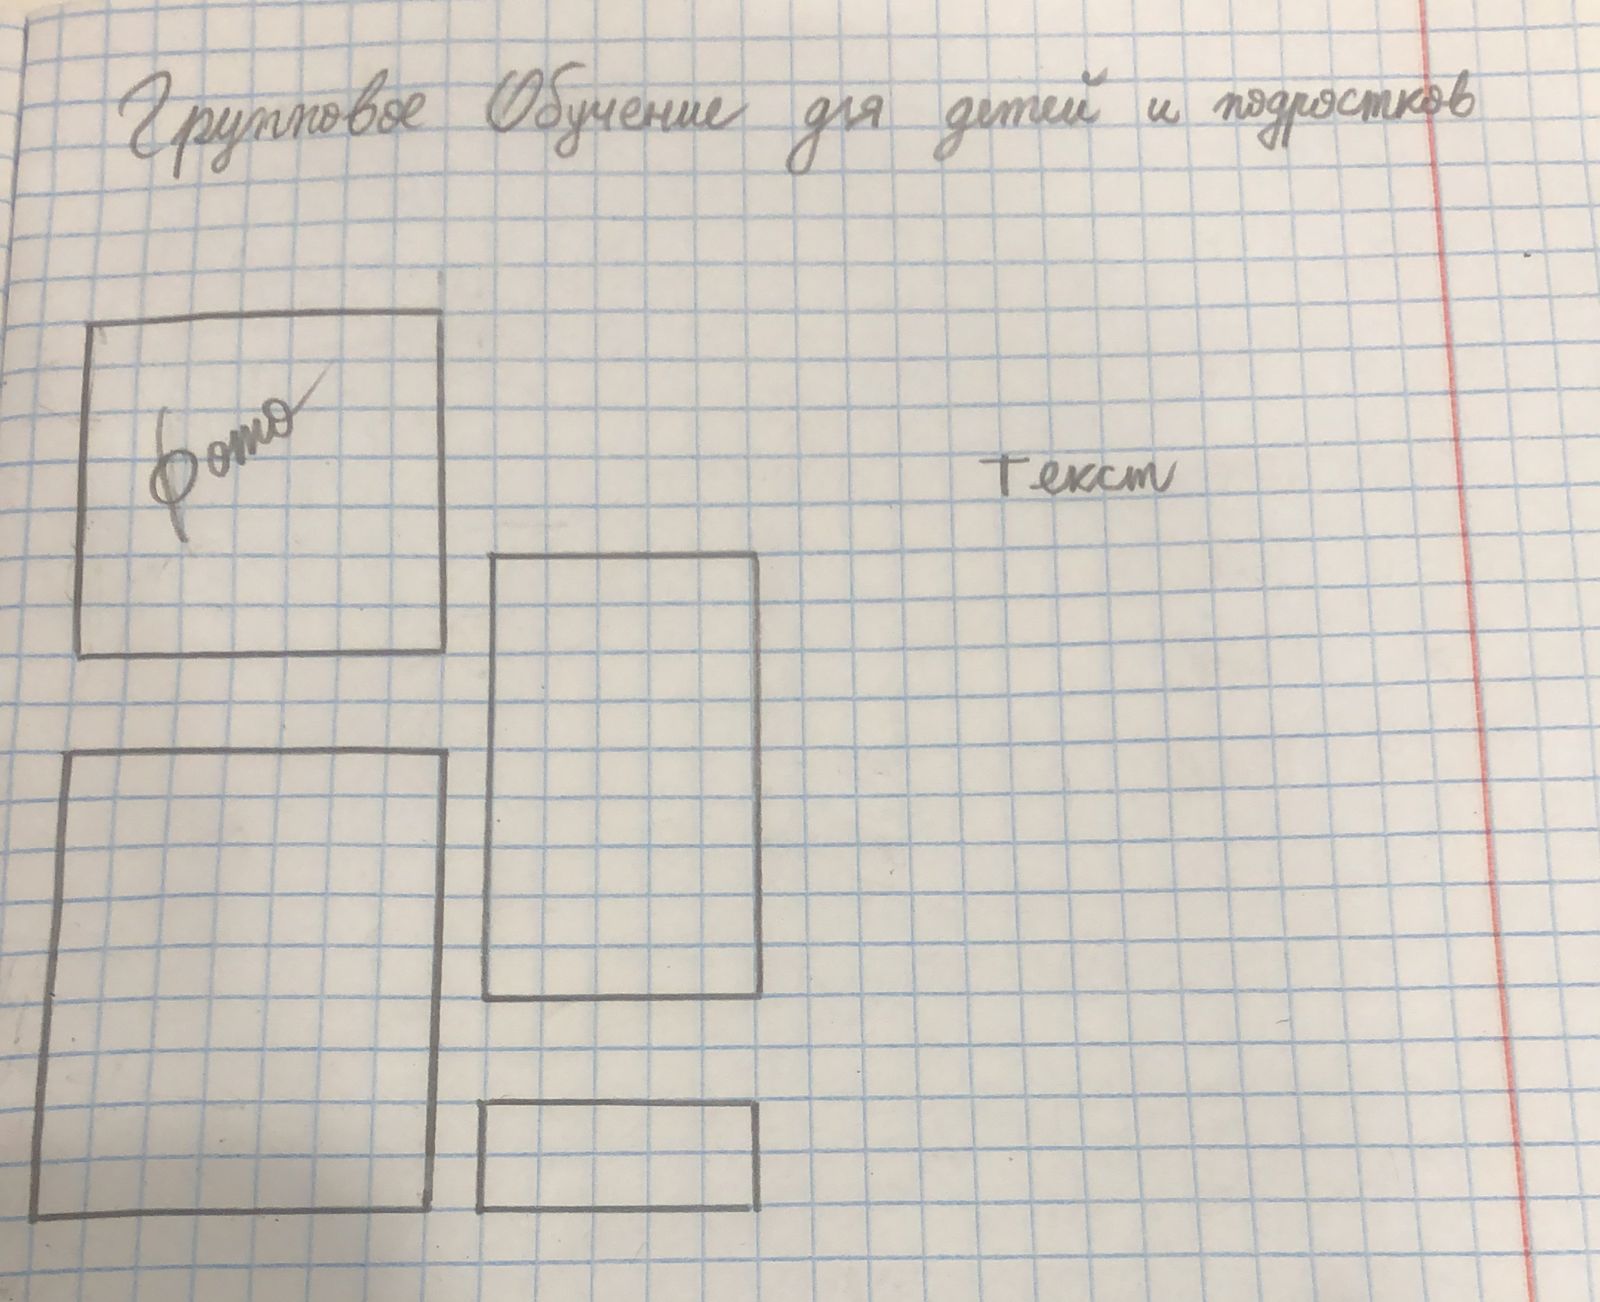 Групповое Обучение для детей и подростков
фото
текст